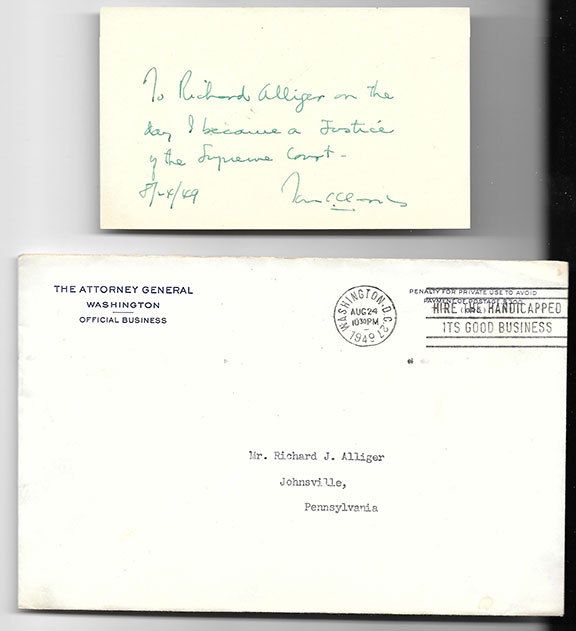 To Richard Alliger on the
day I became a Justice
of the Supreme Court -
8/24/49 Tom C. Clark
THE ATTORNEY GENERAL
WASHINGTON
OFFICIAL BUSINESS
WASHINGTON, D.C. 27
AUG 24
10 30 PM
1949
PENALTY FOR PRIVATE USE TO AVOID
PAYMENT OF POSTAGE $300
HIRE THE HANDICAPPED
ITS GOOD BUSINESS
Mr. Richard J. Alliger
Johnsville,
Pennsylvania